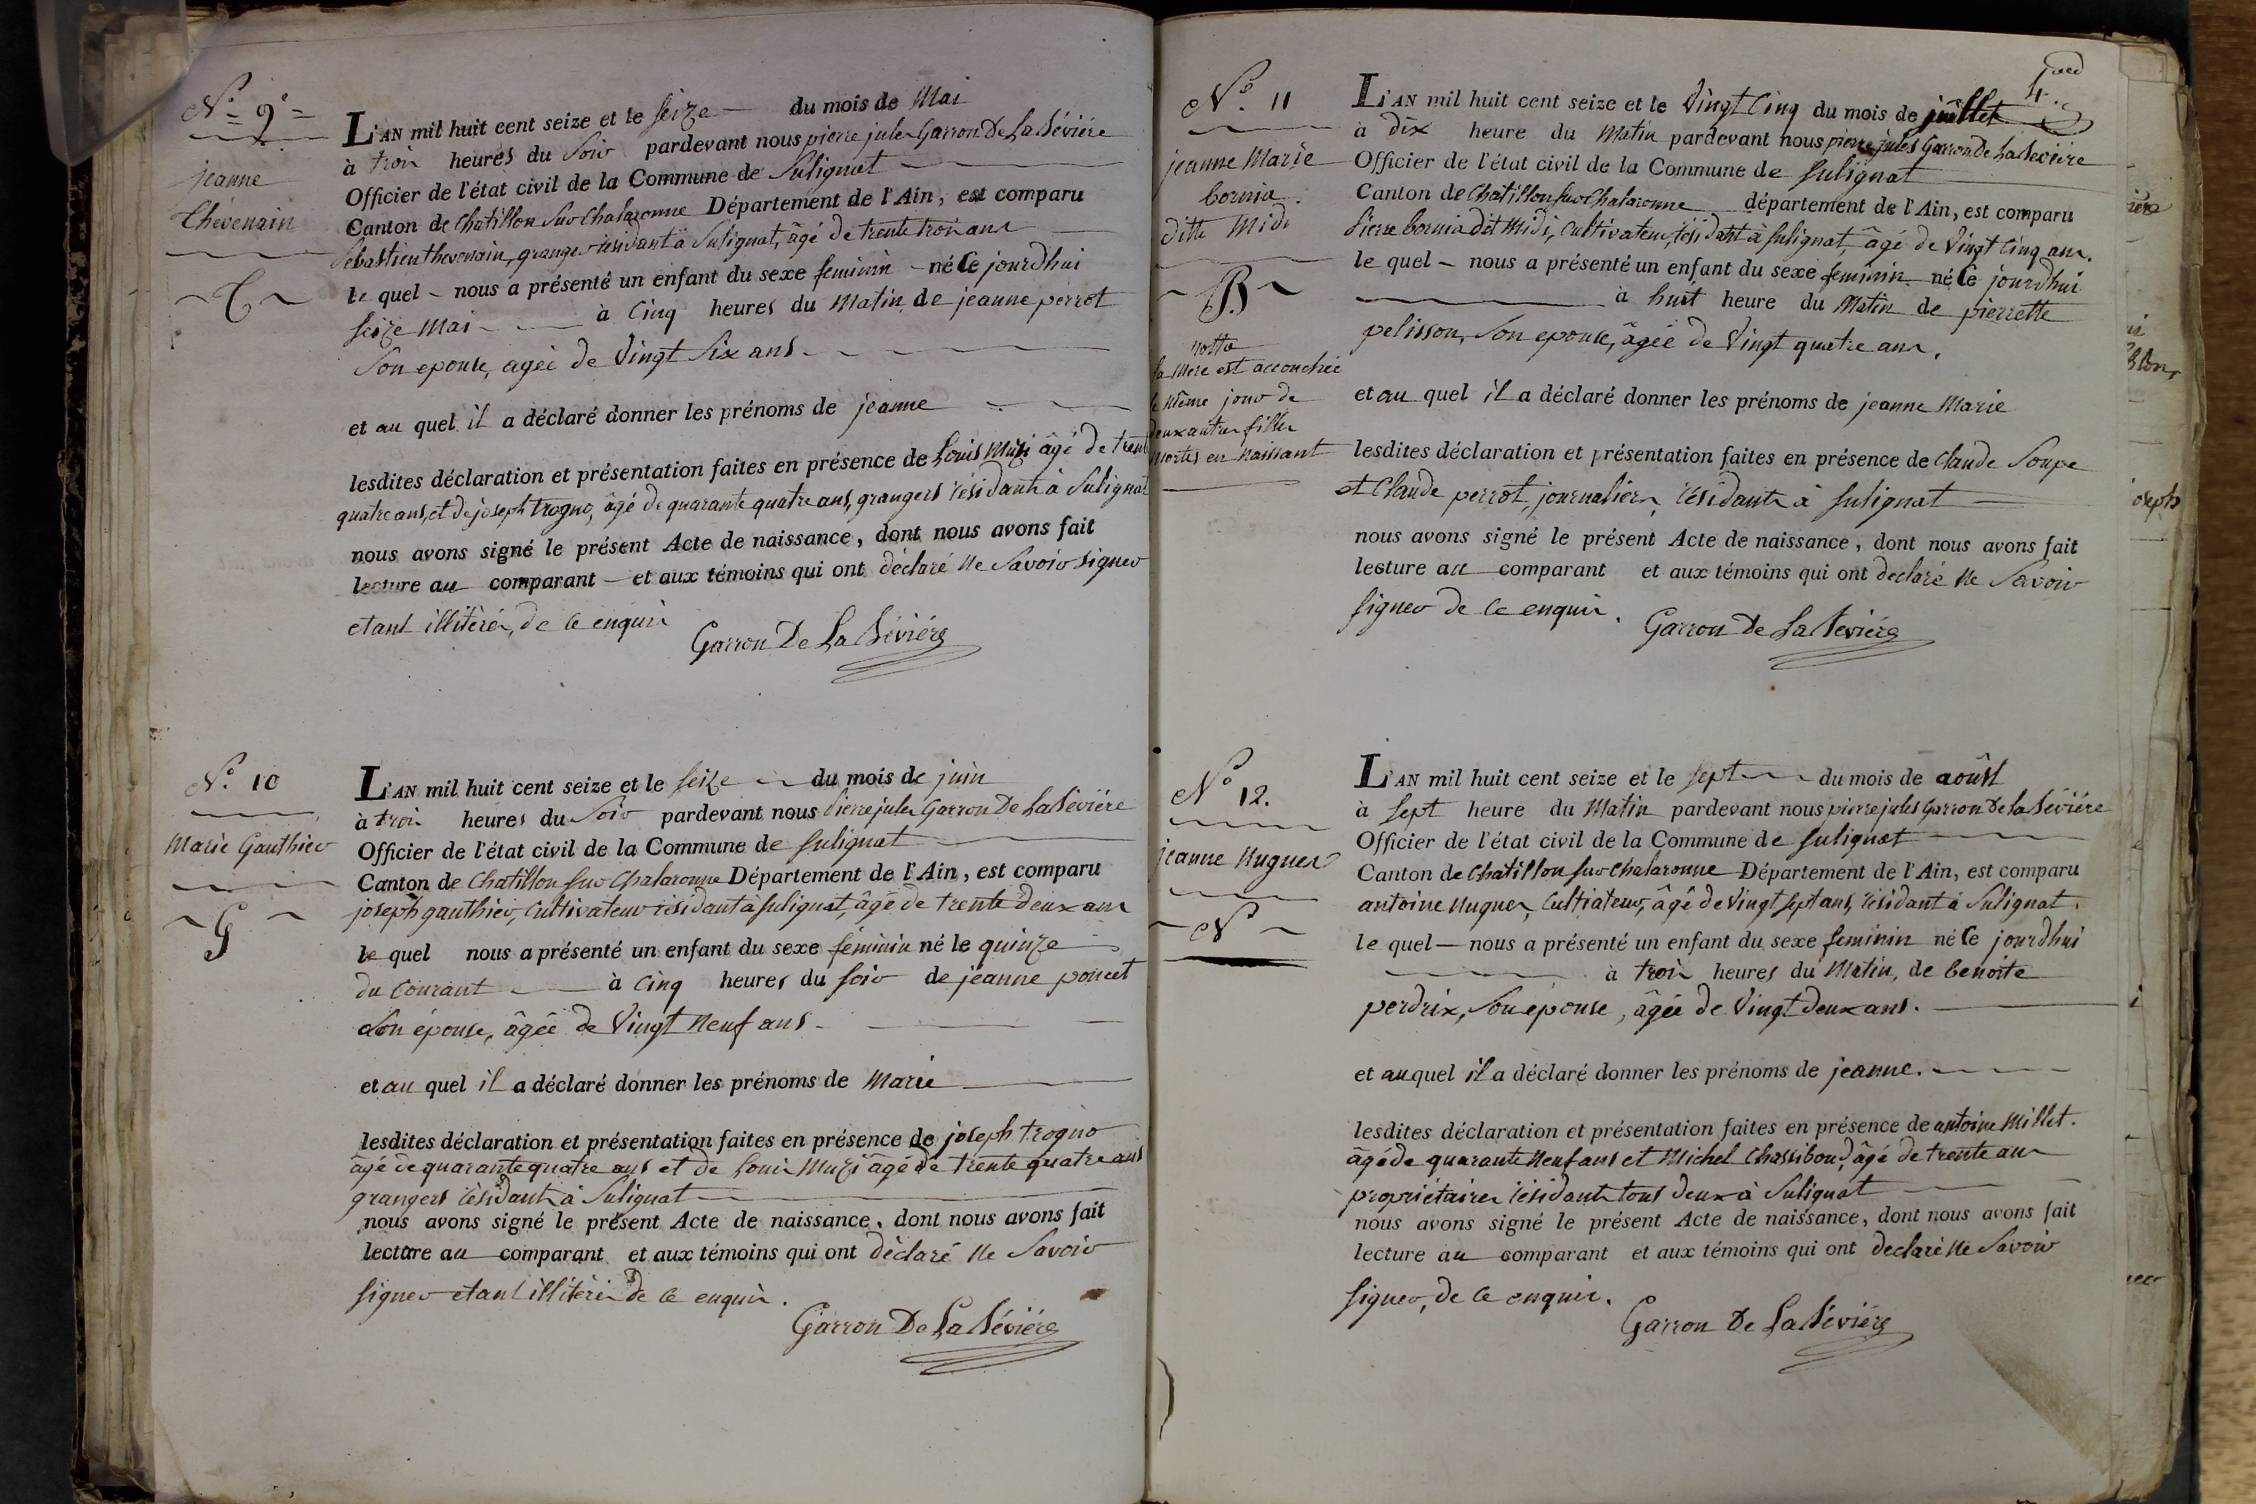 N.° 9.e
jeanne
thévenain
T
L'AN mil huit cent seize et le seize du mois de Mai
à trois heures du soir pardevant nous pierre jules Garron De La Séviére
Officier de l'état civil de la Commune de Sulignat
Canton de Chatillon Sur Chalaronne Département de l'Ain, est comparu
Sebastien thevenain, granger résidant à Sulignat, âgé de trente trois ans
le quel nous a présenté un enfant du sexe feminin né Ce jourdhui
seize Mai à Cinq heures du Matin, de jeanne perrot
Son epouse, agée de Vingt Six ans
et au quel il a déclaré donner les prénoms de jeanne
lesdites déclaration et présentation faites en présence de Louis Muzi âgé de trent
quatre ans, et de joseph trogno, âgé de quarante quatre ans, grangers résidants à Sulignat
nous avons signé le présent Acte de naissance, dont nous avons fait
lecture au comparant et aux témoins qui ont déclaré ne Savoir signer
etant illitérés, de ce enquis
Garron De La Séviére
N.° 10
Marie Gauthier
G
L'AN mil huit cent seize et le seize du mois de juin
à trois heures du Soir pardevant nous Pierre jules Garron De La Séviére
Officier de l'état civil de la Commune de Sulignat
Canton de Chatillon sur Chalaronne Département de l'Ain, est comparu
joseph gauthier, Cultivateur résidant à sulignat, âgé de trente deux ans
le quel nous a présenté un enfant du sexe féminin né le quinze
du Courant à Cinq heures du soir de jeanne poncet
Son épouse, âgée de Vingt Neuf ans
et au quel il a déclaré donner les prénoms de Marie
lesdites déclaration et présentation faites en présence de joseph trogno
âgé de quarante quatre ans et de Louis Muzi âgé de trente quatre ans
grangers résidants à Sulignat
nous avons signé le présent Acte de naissance, dont nous avons fait
lecture au comparant et aux témoins qui ont déclaré ne Savoir
signer etant illitérés de ce enquis.
Garron De La Séviére
4.
N.° 11
jeanne Marie
bornia
ditte Midi
B
notta
la Mere est accouchée
le même jour de
deux autres filles
mortes en naissant
L'AN mil huit cent seize et le Vingt Cinq du mois de juillet
à dix heure du Matin pardevant nous pierre jules Garron De La Seviére
Officier de l'état civil de la Commune de Sulignat
Canton de Chatillon sur Chalaronne département de l'Ain, est comparu
Pierre bornia dit Midi, Cultivateur, résidant à sulignat, âgé de Vingt Cinq ans.
le quel nous a présenté un enfant du sexe feminin né Ce jourdhui
à huit heure du Matin de pierrette
pelisson, Son epouse, âgée de Vingt quatre ans.
et au quel il a déclaré donner les prénoms de jeanne Marie
lesdites déclaration et présentation faites en présence de Claude Soupe
et Claude perrot, journaliers, résidants à sulignat
nous avons signé le présent Acte de naissance, dont nous avons fait
lecture au comparant et aux témoins qui ont declaré ne Savoir
signer de ce enquis.
Garron De La Séviére
N.° 12.
jeanne Nugues
N
L'AN mil huit cent seize et le sept du mois de août
à sept heure du Matin pardevant nous pierre jules Garron De La Séviére
Officier de l'état civil de la Commune de Sulignat
Canton de Chatillon sur Chalaronne Département de l'Ain, est comparu
antoine Nugues, Cultiateur, âgé de Vingt sept ans, résidant à Sulignat.
le quel nous a présenté un enfant du sexe feminin né Ce jourdhui
à trois heures du Matin, de benoite
perdrix, Son épouse, âgée de Vingt deux ans.
et auquel il a déclaré donner les prénoms de jeanne.
lesdites déclaration et présentation faites en présence de antoine Millet.
âgé de quarante Neuf ans et Michel Chassiboud, âgé de trente ans
propriétaires résidants tous deux à Sulignat
nous avons signé le présent Acte de naissance, dont nous avons fait
lecture au comparant et aux témoins qui ont declaré ne Savoir
signer, de ce enquis.
Garron De La Séviére